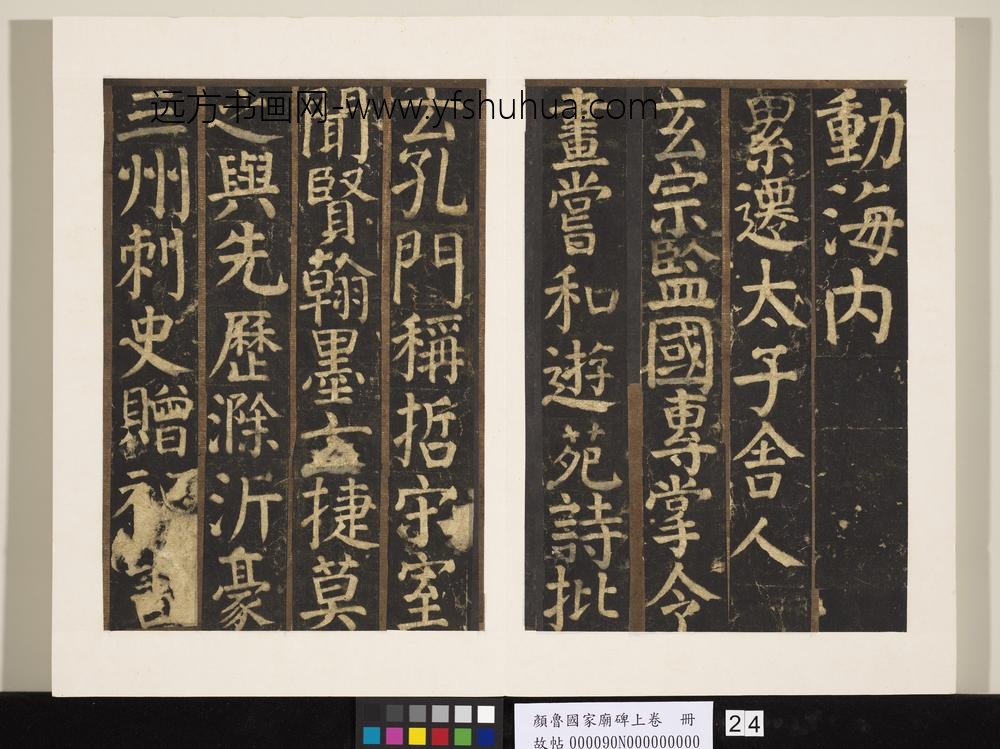 動海内
累遷太子舍人
玄宗監國專掌令
畫嘗和遊苑詩批
云孔門稱哲宋室
聞賢翰墨玄捷莫
之與先歷滁沂豪
三州刺史贈祕書
远方书画网-www.yfshuhua.com
顏魯國家廟碑上卷 冊
故帖 000090N000000000
24